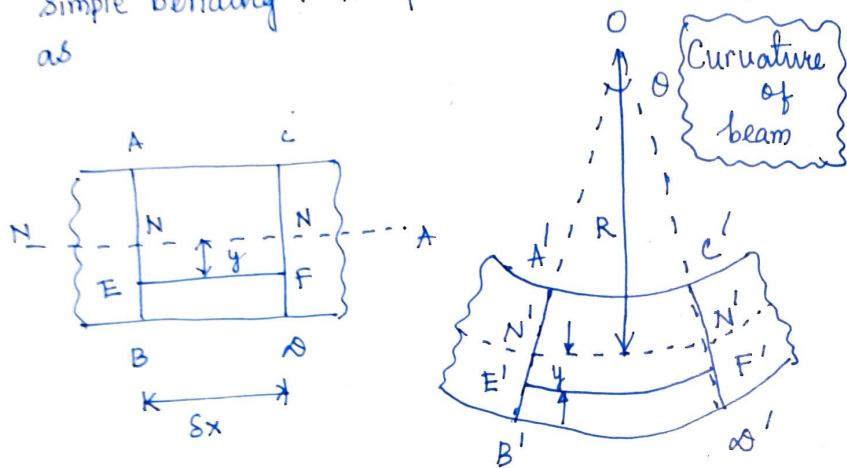 simple bending
as
O
θ
Curvature
of
beam
A
C
N
N
N
A
y
E
F
B
D
δx
R
A'
C'
N'
N'
E'
y
F'
B'
D'